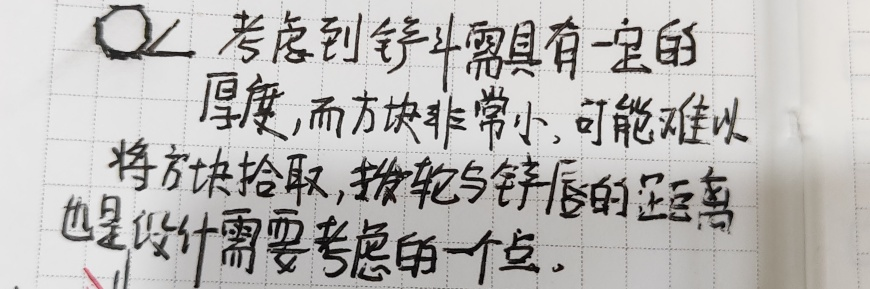 考虑到铲斗需具有一定的
厚度,而方块非常小,可能难以
将方块拾取,拨轮与铲唇的距离
也是设计需要考虑的一个点。